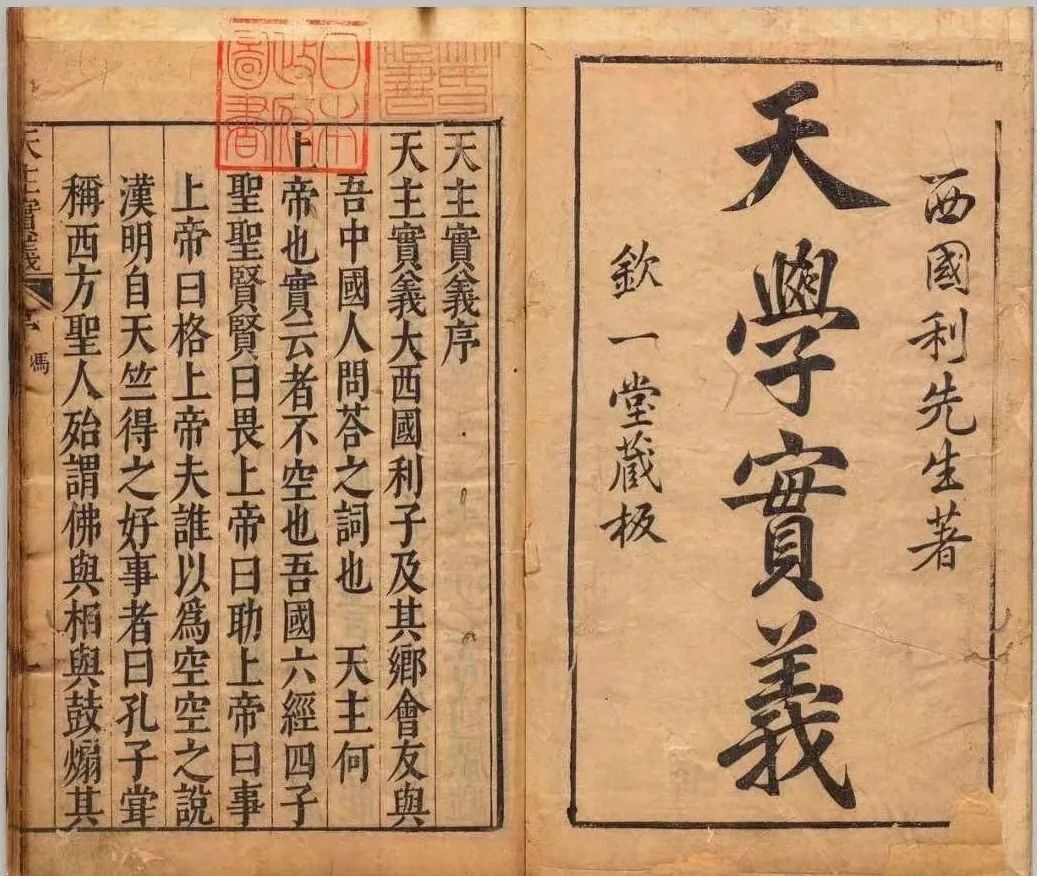 西國利先生著
天學實義
欽一堂蔵板
日本政府圖書
天主實義序
天主實義大西國利子及其鄉會友與
吾中國人問荅之詞也　天主何
上帝也實云者不空也吾國六經四子
聖聖賢賢曰畏上帝曰助上帝曰事
上帝曰格上帝夫誰以爲空空之說
漢明自天竺得之好事者曰孔子甞
稱西方聖人殆謂佛與相與鼓煽其
天主實義 序 馮 一